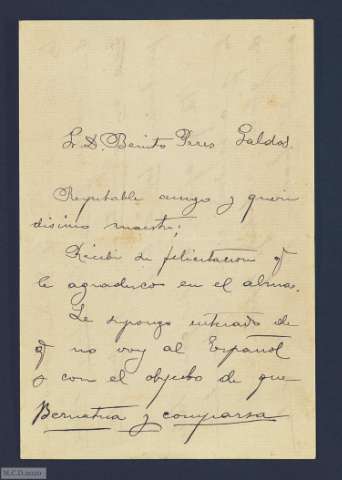 Sr. D. Benito Peres Galdos.
Respetable amigo y queri
disimo maestro;
Recibi su felicitacion q
le agradezco en el alma.
Le supongo enterado de
q no voy al Español
y con el objeto de que
y comparsa
M.C.D.2020